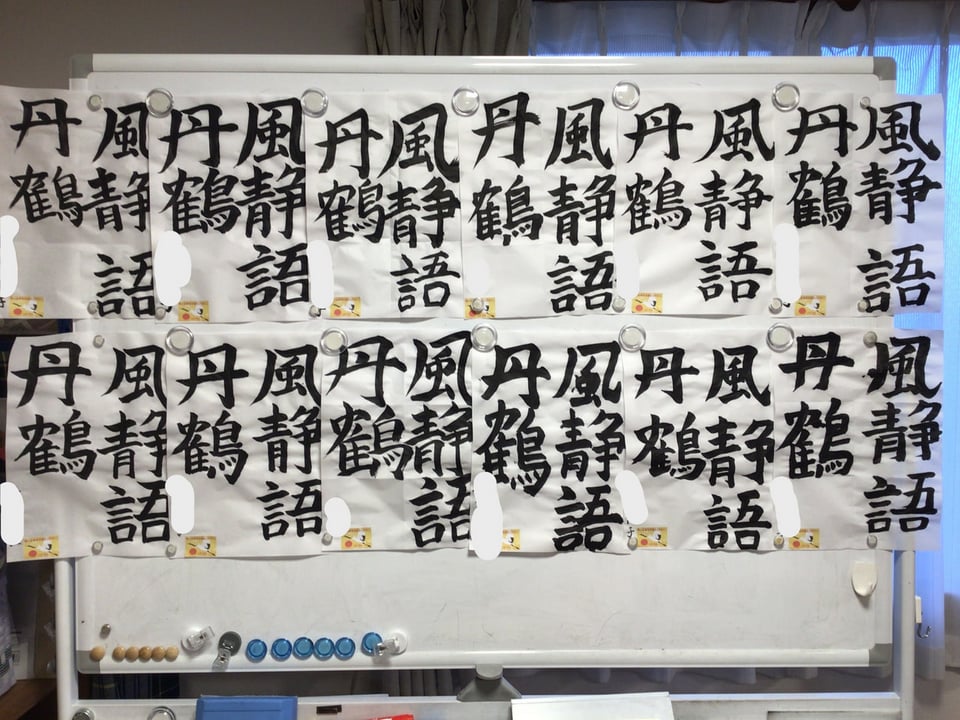 風静語
丹鶴
風静語
丹鶴
風静語
丹鶴
風静語
丹鶴
風静語
丹鶴
風静語
丹鶴
風静語
丹鶴
風静語
丹鶴
風静語
丹鶴
風静語
丹鶴
風静語
丹鶴
風静語
丹鶴